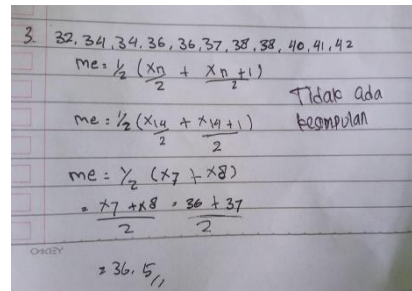 3. 32, 34, 34, 36, 36, 37, 38, 38, 40, 41, 42
me = 1/2 (xn/2 + xn+1/2)
Tidak ada
kesimpulan
me = 1/2 (x14/2 + x14+1/2)
me = 1/2 (x7 + x8)
= x7+x8/2 = 36+37/2
= 36.5,,